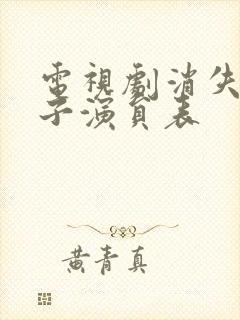 電視劇消失
子演員表
黃青真